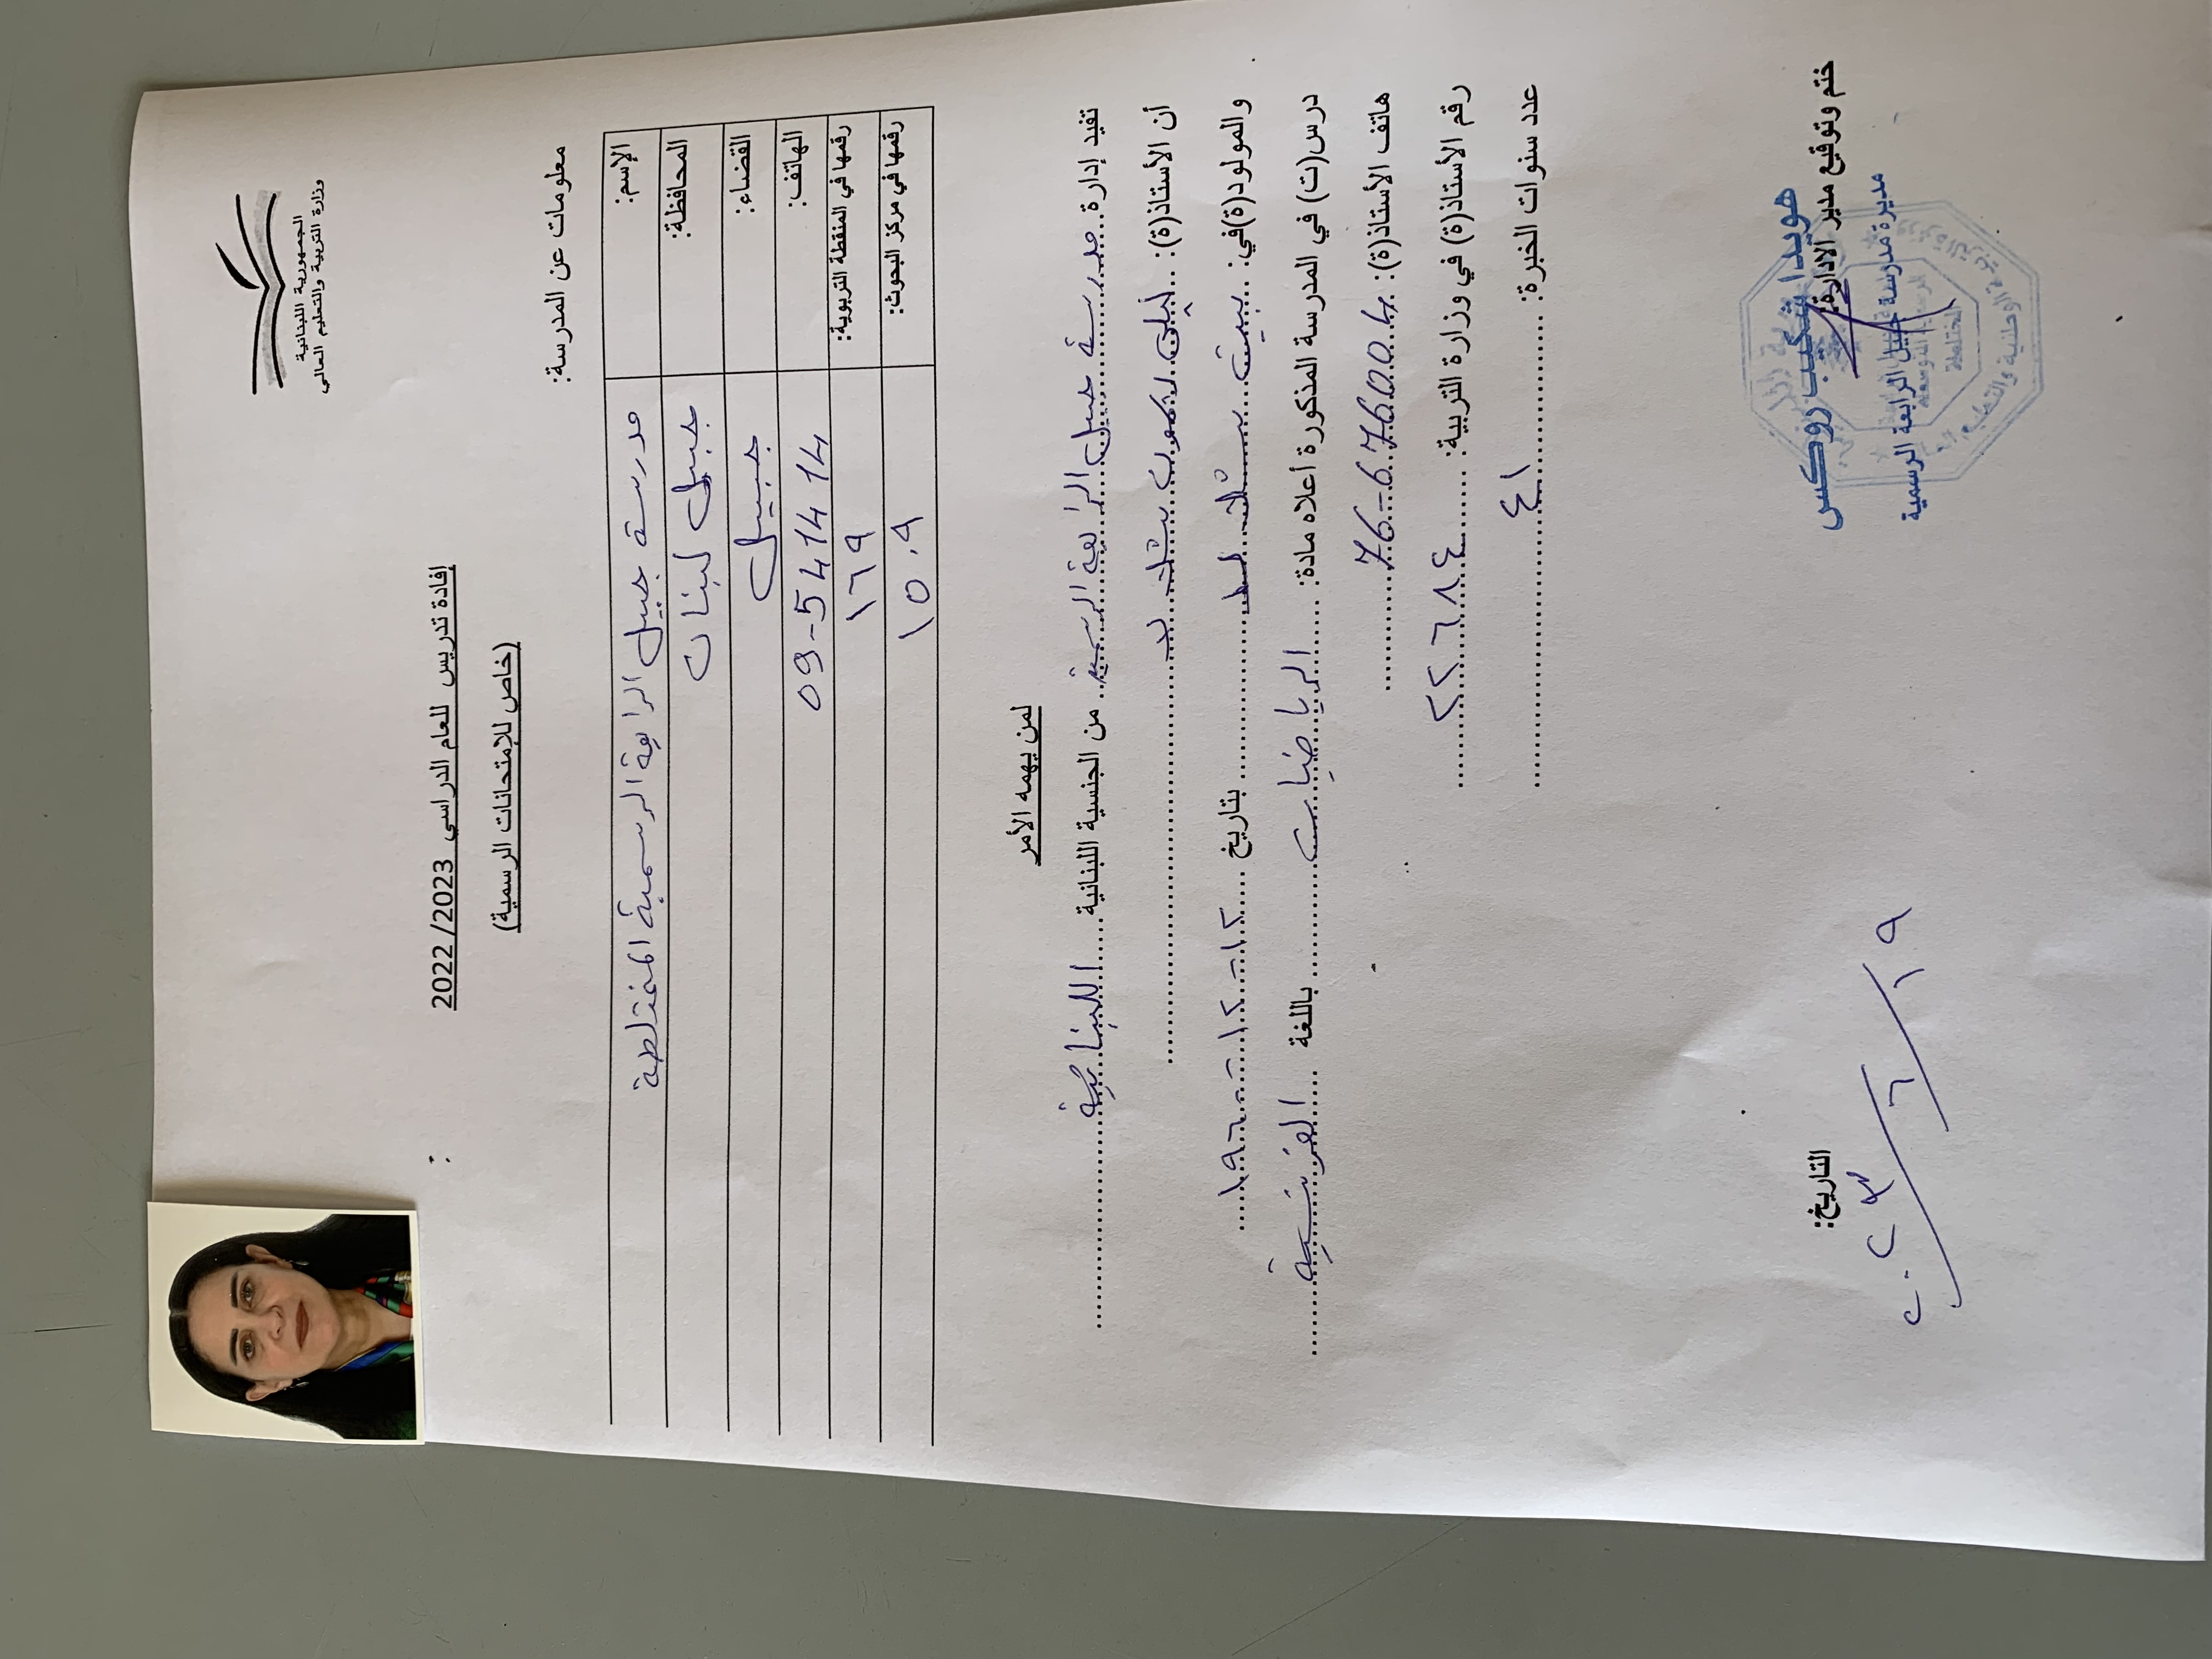 الجمهورية اللبنانية
وزارة التربية والتعليم العالي
إفادة تدريس للعام الدراسي 2022/2023
(خاص للإمتحانات الرسمية)
معلومات عن المدرسة:
الإسم: مدرسة جبيل الرابعة الرسمية المختلطة
المحافظة: جبيل لبنان
القضاء: جبيل
الهاتف: 09-541414
رقمها في المنقطة التربوية: ١٦٩
رقمها في مركز البحوث: ١٥٠٩
لمن يهمه الأمر
تفيد إدارة مدرسة جبيل الرابعة الرسمية من الجنسية اللبنانية اللبنانية
أن الأستاذ(ة): ليلى
والمولود(ة) في: بيت بتاريخ ١٢-١٢-١٩٦٠
درس(ت) في المدرسة المذكورة أعلاه مادة: الرياضيات باللغة الفرنسية
هاتف الأستاذ(ة): 76-676004
رقم الأستاذ(ة) في وزارة التربية: ٢٢٦٨٤
عدد سنوات الخبرة: ٤١
ختم وتوقيع مدير الادارة:
هويدا شكيب روكس
مديرة مدرسة جبيل الرابعة الرسمية
التاريخ:
١٩/٦/٢٠٢٣